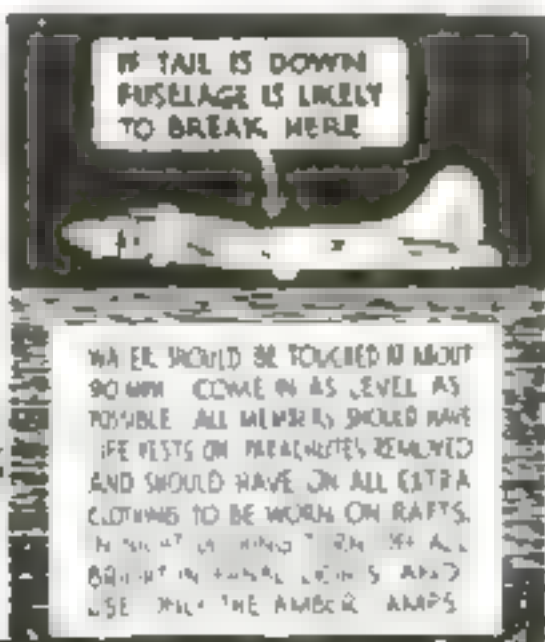 IF TAIL IS DOWN
FUSELAGE IS LIKELY
TO BREAK HERE
WATER SHOULD BE TOUCHED AT ABOUT
90 MPH COME IN AS LEVEL AS
POSSIBLE ALL MEMBERS SHOULD HAVE
LIFE VESTS ON PARACHUTES REMOVED
AND SHOULD HAVE ON ALL EXTRA
CLOTHING TO BE WORN ON RAFTS.
ALL
BRIGHT AND
USE ONLY THE AMBER LAMPS